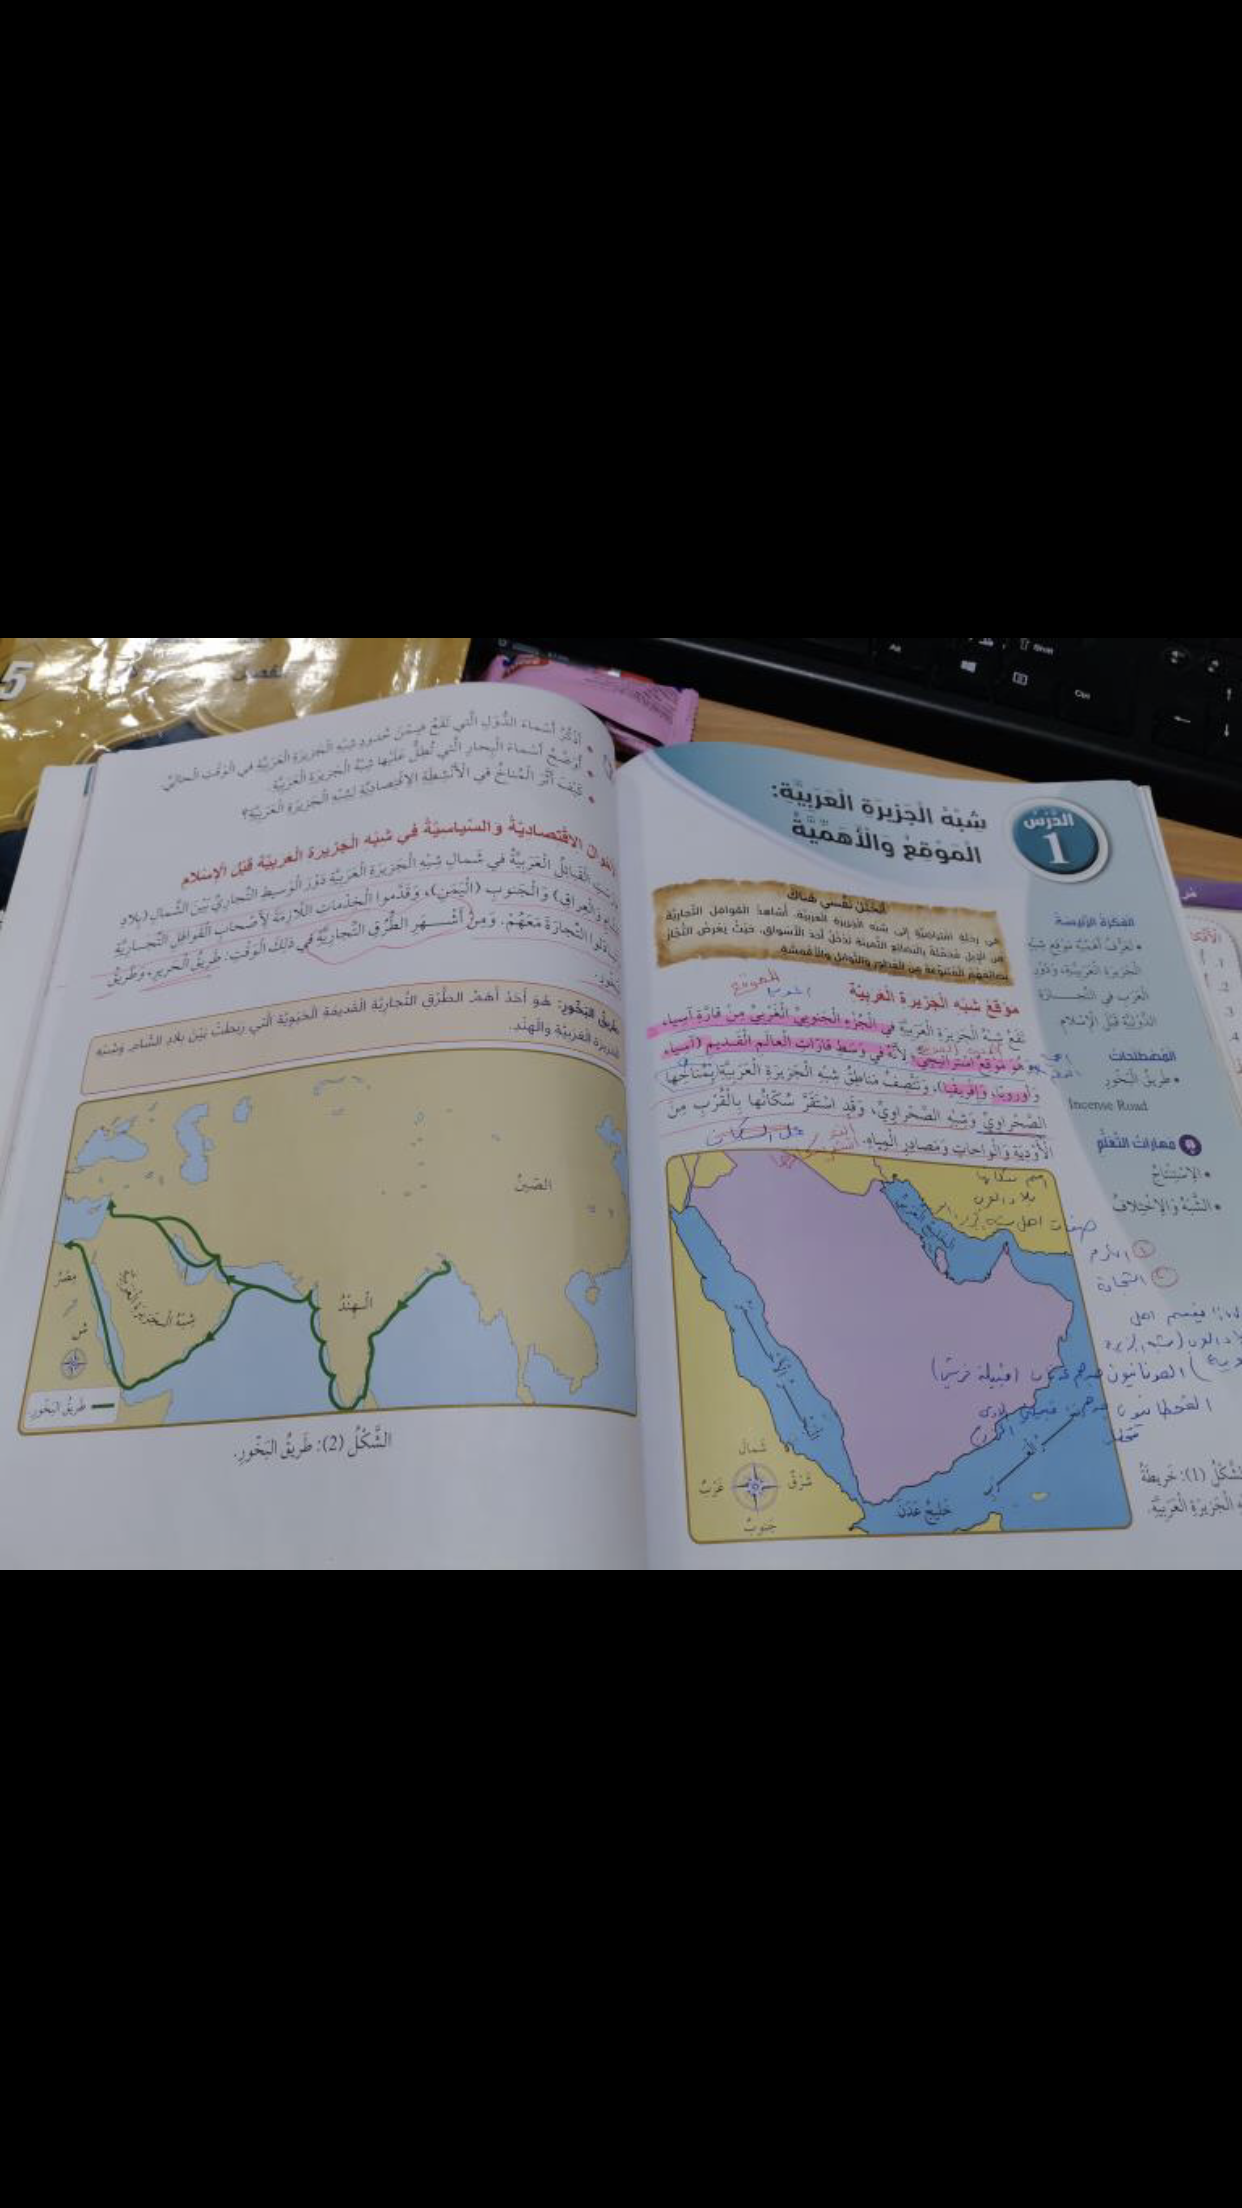 الدَّرْسُ
1
شِبْهُ الْجَزيرَةِ الْعَرَبِيَّةِ:
الْمَوْقِعُ وَالْأَهَمِّيَّةُ
الفكرة الرئيسة
• تعرُّف أهمية موقع شبه
الجزيرة العربية، ودور
العرب في التجارة
الدولية قبل الإسلام
المصطلحات
• طريق البخور
Incense Road
مهارات التعلّم
• الاستنتاج
• الشبه والاختلاف
أتخيل نفسي هناك
في رحلة افتراضية إلى شبه الجزيرة العربية، أشاهد القوافل التجارية
من الإبل محملة بالبضائع الثمينة تدخل أحد الأسواق، حيث يعرض التجار
بضائعهم المتنوعة من العطور والتوابل والأقمشة.
الموقع
مَوْقِعُ شِبْهِ الْجَزيرَةِ الْعَرَبِيَّةِ
تَقَعُ شِبْهُ الْجَزيرَةِ الْعَرَبِيَّةِ في الْجُزْءِ الْجَنوبِيِّ الْغَرْبِيِّ مِنْ قارَّةِ آسِياء
وَهُوَ مَوْقِعٌ اسْتراتيجِيٌّ؛ لِأَنَّهُ في وَسَطِ قارّاتِ الْعالَمِ الْقَديمِ (آسِياء
وَأوروبّا، وَإفْريقيا)، وَتَتَّصِفُ مَناطِقُ شِبْهِ الْجَزيرَةِ الْعَرَبِيَّةِ بِمُناخِها
الصَّحْراوِيِّ وَشِبْهِ الصَّحْراوِيِّ، وَقَدِ اسْتَقَرَّ سُكّانُها بِالْقُرْبِ مِنَ
الْأَوْدِيَةِ وَالْواحاتِ وَمَصادِرِ الْمِياهِ.
اسم سكانها
بلاد العرب
صفات اهل
① الكرم
② التجارة
العدنانيون
(قبيلة قريش)
القحطانيون
شَمال
شَرْقٌ
غَرْبٌ
جَنوبٌ
خَليجُ عَدَنَ
الشَّكْلُ (1): خَريطَةُ
الْجَزيرَةِ الْعَرَبِيَّةِ.
• أَذْكُرُ أَسْماءَ الدُّوَلِ الَّتي تَقَعُ ضِمْنَ حُدودِ شِبْهِ الْجَزيرَةِ الْعَرَبِيَّةِ في الْوَقْتِ الْحالِيِّ.
• أُوَضِّحُ أَسْماءَ الْبِحارِ الَّتي تُطِلُّ عَلَيْها شِبْهُ الْجَزيرَةِ الْعَرَبِيَّةِ.
• كَيْفَ أَثَّرَ الْمُناخُ في الْأَنْشِطَةِ الِاقْتِصادِيَّةِ لِشِبْهِ الْجَزيرَةِ الْعَرَبِيَّةِ؟
الِاقْتِصادِيَّةُ وَالسِّياسِيَّةُ في شِبْهِ الْجَزيرَةِ الْعَرَبِيَّةِ قَبْلَ الْإِسْلامِ
الْقَبائِلُ الْعَرَبِيَّةُ في شَمالِ شِبْهِ الْجَزيرَةِ الْعَرَبِيَّةِ دَوْرَ الْوَسيطِ التِّجارِيِّ بَيْنَ الشَّمالِ (بِلادِ
وَالْعِراقِ) وَالْجَنوبِ (الْيَمَنِ)، وَقَدَّموا الْخِدْماتِ اللّازِمَةَ لِأَصْحابِ الْقَوافِلِ التِّجارِيَّةِ
التِّجارَةَ مَعَهُمْ. وَمِنْ أَشْهَرِ الطُّرُقِ التِّجارِيَّةِ في ذلِكَ الْوَقْتِ: طَريقُ الْحَريرِ، وَطَريقُ
طَريقُ الْبَخّورِ: هُوَ أَحَدُ أَهَمِّ الطُّرُقِ التِّجارِيَّةِ الْقَديمَةِ الْحَيَوِيَّةِ الَّتي رَبَطَتْ بَيْنَ بِلادِ الشّامِ وَشِبْهِ
الْجَزيرَةِ الْعَرَبِيَّةِ وَالْهِنْدِ.
الصّينُ
الْهِنْدُ
مِصْرُ
شِبْهُ الْجَزيرَةِ الْعَرَبِيَّةِ
ش
طَريقُ الْبَخّورِ
الشَّكْلُ (2): طَريقُ الْبَخّورِ.
5
Alt
Shift
Ctrl